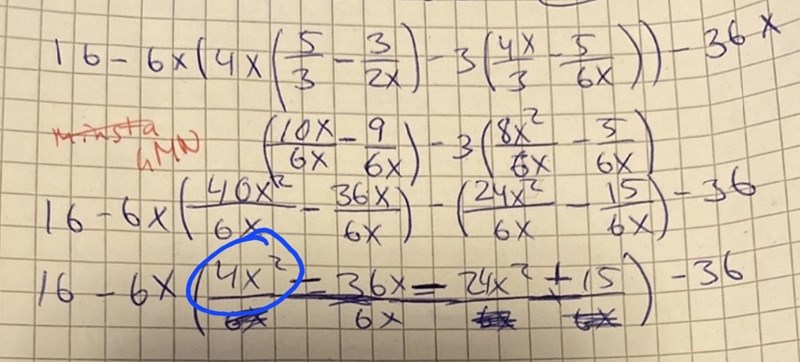 16 - 6x(4x(5/3 - 3/2x) - 3(4x/3 - 5/6x)) - 36x
minsta (10x/6x - 9/6x) - 3(8x²/6x - 5/6x)
GMN
16 - 6x(40x²/6x - 36x/6x) - (24x²/6x - 15/6x) - 36
16 - 6x(4x² - 36x - 24x² + 15/6x) - 36